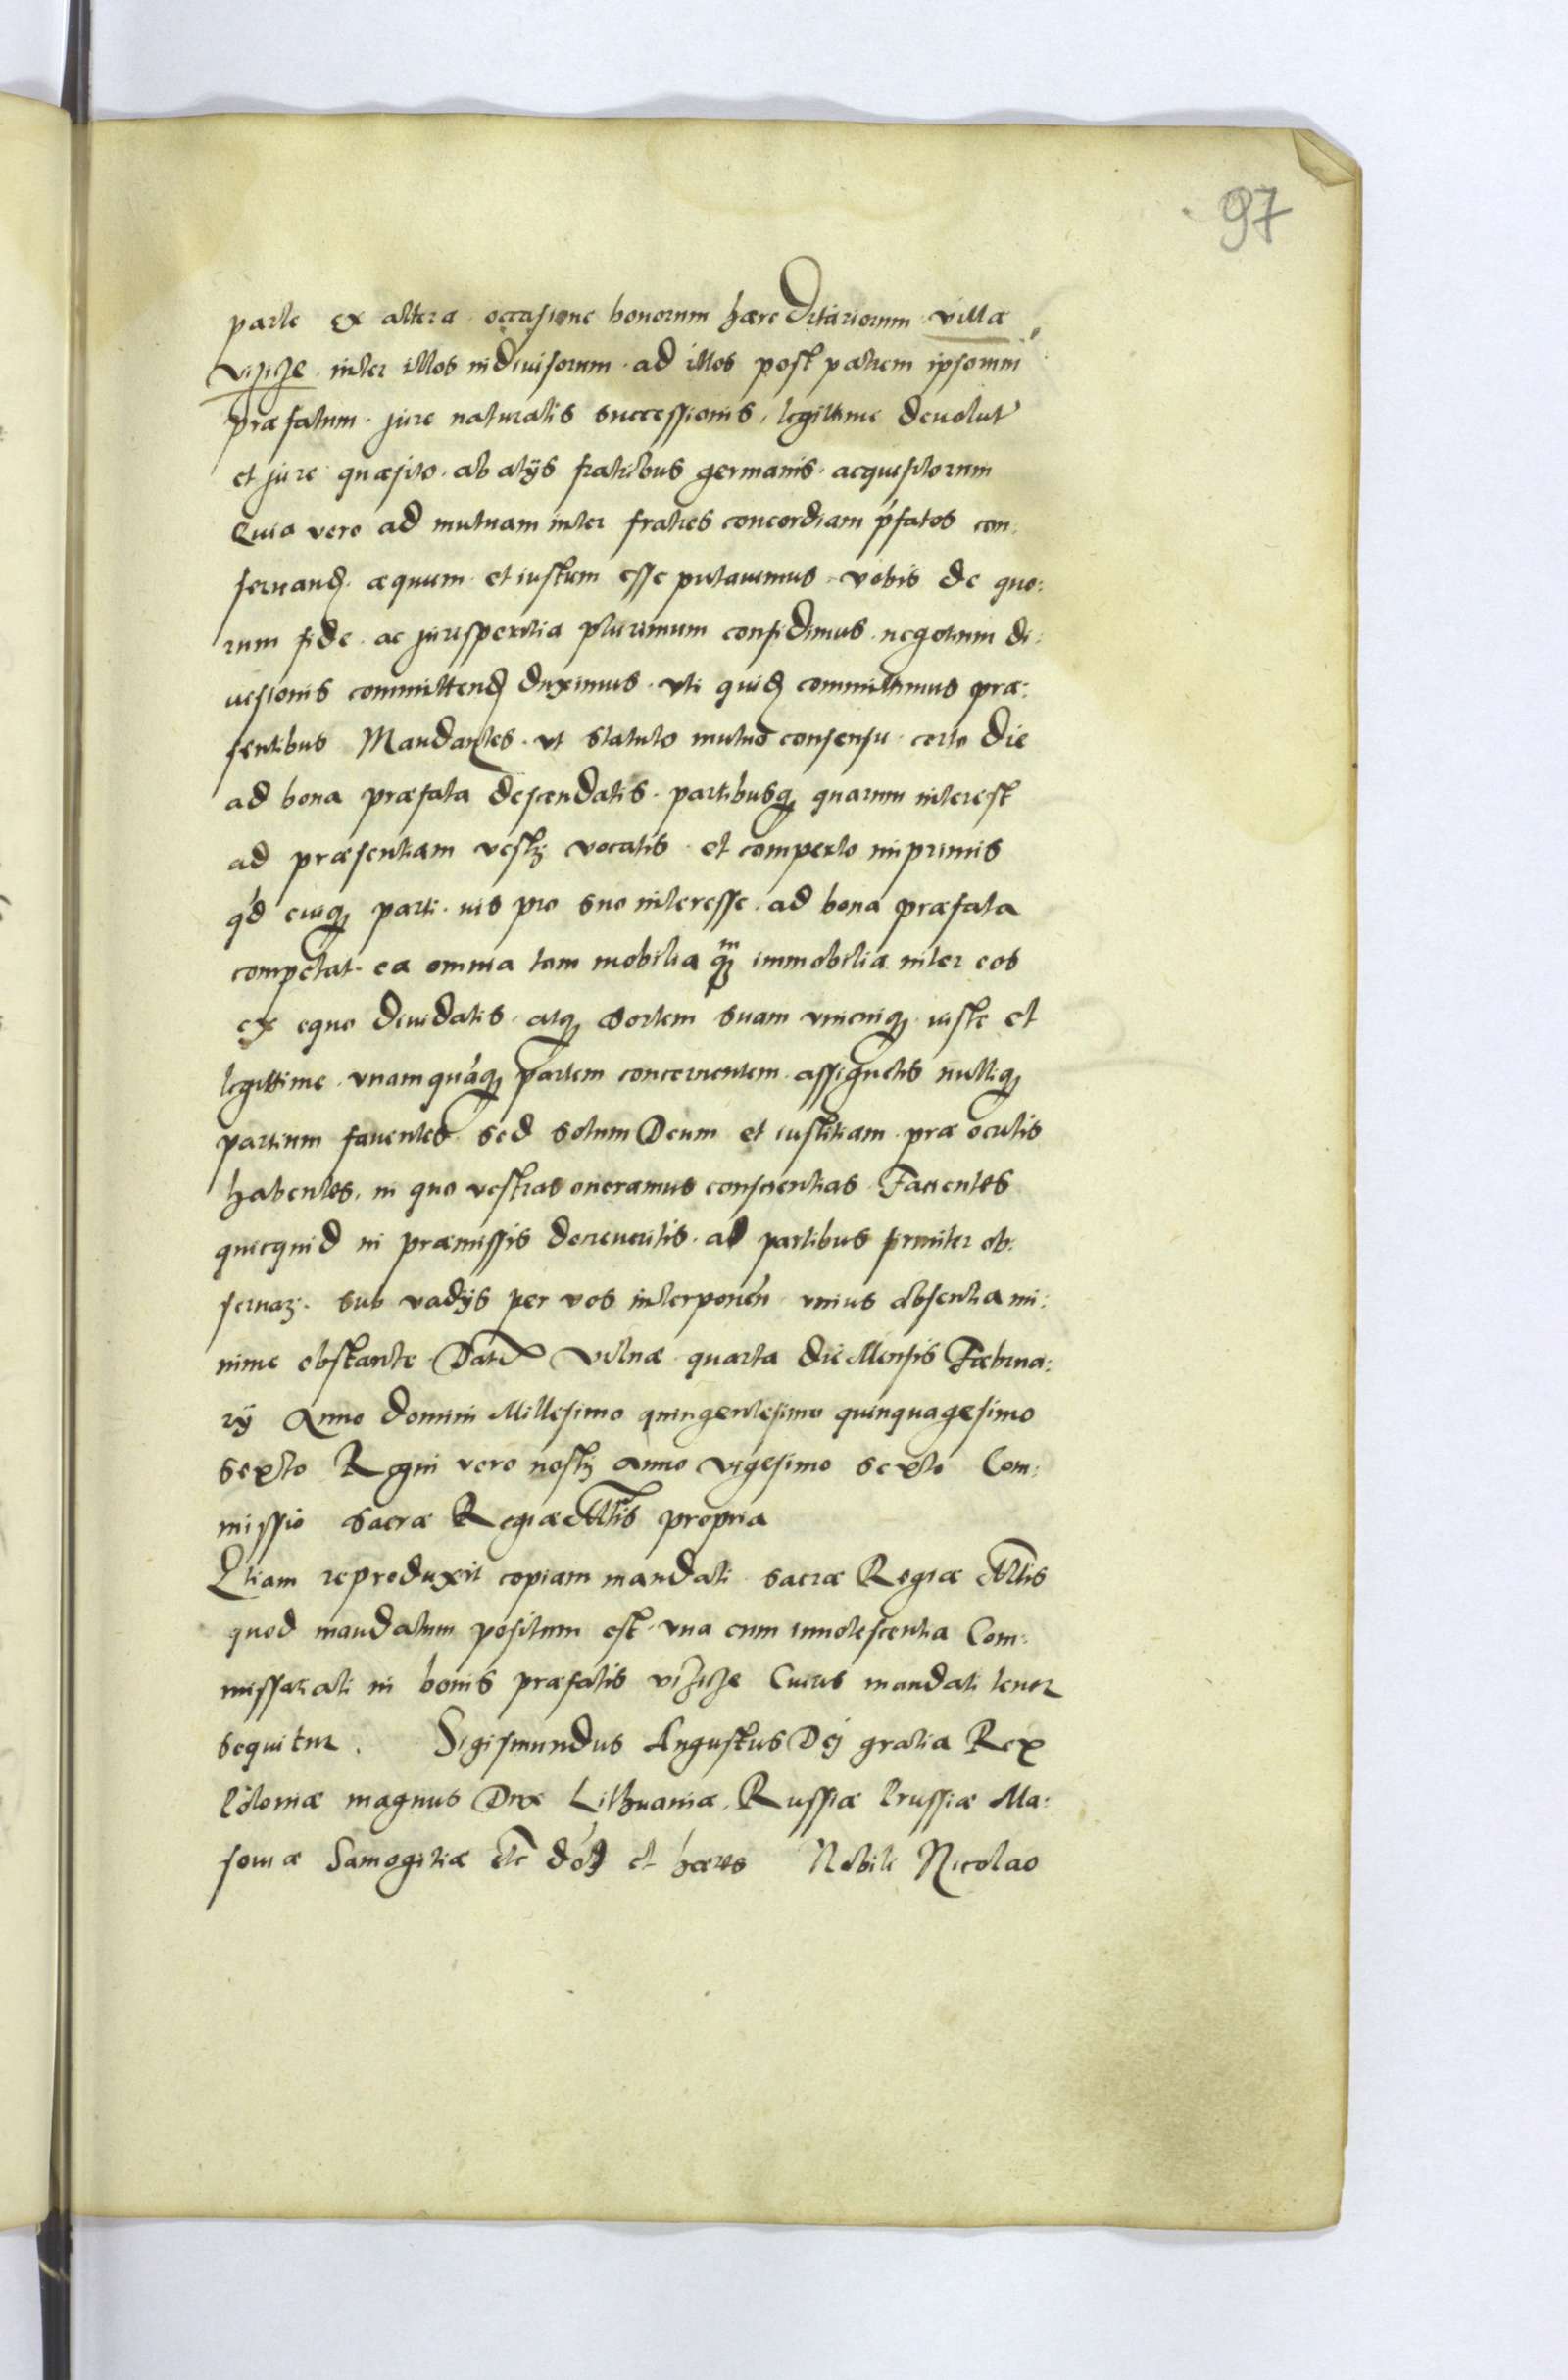 97
parte ex altera occasione bonorum hæreditariorum villæ
vijsije inter illos indiuisorum ad illos post patrem ipsorum
præfatum jure naturalis successionis legittime deuolut
et jure quæsito ab alijs fratribus germanis acquesitorum
Quia vero ad mutuam inter fratres concordiam p'fatos con:
seruand æquum et iustum esse putauimus vobis de quo:
rum fide ac jurisperitia plurimum confidimus negotium di:
uisionis committend duximus vti quid committimus præ:
sentibus Mandantes vt statuto mutuo consensu certo die
ad bona præfata descendatis partibusq quarum interest
ad præsentiam vestr vocatis et comperto inprimis
q'd cuiq parti ius pro suo interesse ad bona præfata
competat ea omnia tam mobilia qm immobilia inter eos
ex equo diuidatis atq sortem suam vnicuiq iuste et
legittime vnamquáq partem concernentem assignetis nulliq
partium fauentes sed solum Deum et iustitiam præ oculis
habentes in quo vestras oneramus conscientias Facientes
quicquid in præmissis decreueritis ab partibus firmiter ob:
seruar sub vadijs per vos interponen vnius absentia mi:
nime obstante Dat Vilnæ quarta die Mensis Fæbrua:
rij Anno domini Millesimo quingentesimo quinquagesimo
sexto Regni vero nostr anno vigesimo sexto Com:
missio sacræ Regiæ Mtis propria
Etiam reproduxit copiam mandati sacræ Regiæ Mtis
quod mandatum positum est vna cum innotescentia Com:
missariali in bonis præfatis vijsije Cuius mandati tenor
sequitur. Sigismundus Augustus Dej gratia Rex
Poloniæ magnus Dux Lithuaniæ, Russiæ Prussiæ Ma:
souiæ Samogitiæ etc do'n et hæres Nobili Nicolao